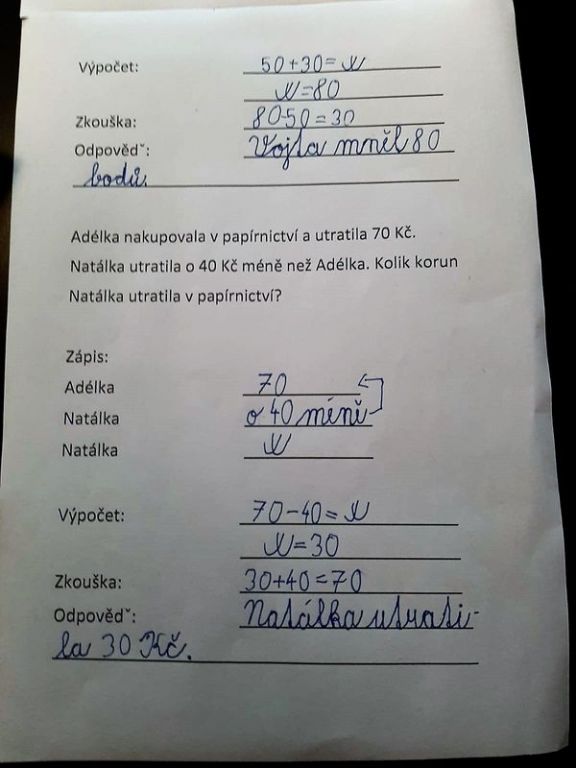 Výpočet: 50+30=x
x=80
Zkouška: 80-50=30
Odpověďˇ: Vojta mněl 80
bodů.
Adélka nakupovala v papírnictví a utratila 70 Kč.
Natálka utratila o 40 Kč méně než Adélka. Kolik korun
Natálka utratila v papírnictví?
Zápis:
Adélka 70
Natálka o 40 méně
Natálka x
Výpočet: 70-40=x
x=30
Zkouška: 30+40=70
Odpověďˇ: Natálka utrati-
la 30 Kč.